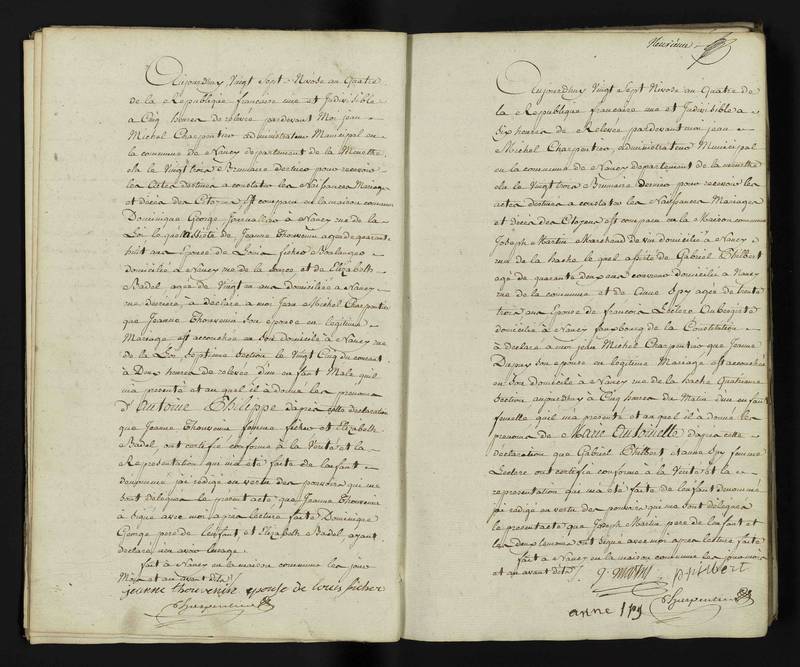 Aujourdhuy Vingt Sept Nivose an Quatre
de la Republique francaise une et Indivisible
a Cinq heures de relevée pardevant Moi jean
Michel Charpentier administrateur Municipal en
la commune de Nancy departement de la Meurthe
elu le Vingt trois Brumaire dernier pour recevoir
les Actes destinés a constater les Naissances Mariages
et décés des Citoyens Est comparu en la maison commune
Dominique George Journallier à Nancy rue de la
Loi lequel assisté de Jeanne Thouvenin agée de quarante
huit ans Epouse de Louis ficher Boulanger
domicilié à Nancy rue de la et de Elizabeth
Badel agée de Vingt un ans domiciliée a Nancy
rue derriere, à déclaré a moi Jean Michel Charpentier
que Jeanne Thouvenin son epouse en legitime
Mariage est accouchée en son domicile à Nancy rue
de la Loi Septieme Section le Vingt Cinq du courant
à Deux heures de relevée d'un enfant Male quil
ma presenté et au quel il à donné les prenoms
d'Antoine Philippe dapres cette declaration
que Jeanne Thouvenin femme ficher et Elizabeth
Badel, ont certifié conforme à la Verité et la
Representation qui ma été faite de lenfant
denommé jai rédigé en vertu des pouvoirs qui me
sont delegués le present acte que Jeanne Thouvenin
à signé avec moi apres lecture faite Dominique
George pere de lenfant et Elizabeth Badel, ayant
declaré nen avoir lusage.
fait à Nancy en la maison commune les jour
Mois et an avant dits
jeanne thouvenin epouse de louis ficher
Charpentier
Neuvieme
Aujourdhuy Vingt Sept Nivose an Quatre de
la Republique francaise une et Indivisible a
Six heures de Relevée pardevant moi jean
Michel Charpentier, administrateur Municipal
en la commune de Nancy departement de la meurthe
elu le Vingt trois Brumaire dernier pour recevoir les
actes destinés a constater les Naissances Mariages
et décés des Citoyens est comparu en la Maison commune
Joseph Martin Marchand de vin domicilié à Nancy
rue de la hache le quel assisté de Gabriel Philbert
agé de quarante deux ans domicilié a Nancy
rue de la commune et de Anne Spy agée de trente
trois ans Epouse de francois Leclerc Aubergiste
domicilié à Nancy fauxbourg de la Constitution
à déclaré a moi jean Michel Charpentier que Jeanne
Dupuy son epouse en legitime Mariage est accouchée
en son domicile a Nancy rue de la hache Quatrieme
Section aujourdhuy à Cinq heures du Matin dun enfant
femelle quil ma presenté et au quel il à donné les
prenoms de Marie Antoinette dapres cette
déclaration que Gabriel Philbert et anne Spy femme
Leclerc ont certifié conforme à la Verité et la
representation qui ma été faite de lenfant denommé
jai redigé en vertu des pouvoirs qui me sont delegués
le present acte que Joseph Martin pere de lenfant et
les deux temoins ont signé avec moi apres lecture faite
fait a Nancy en la maison commune les jour mois
et an avant dits
j. martin philbert
anne Spy
Charpentier